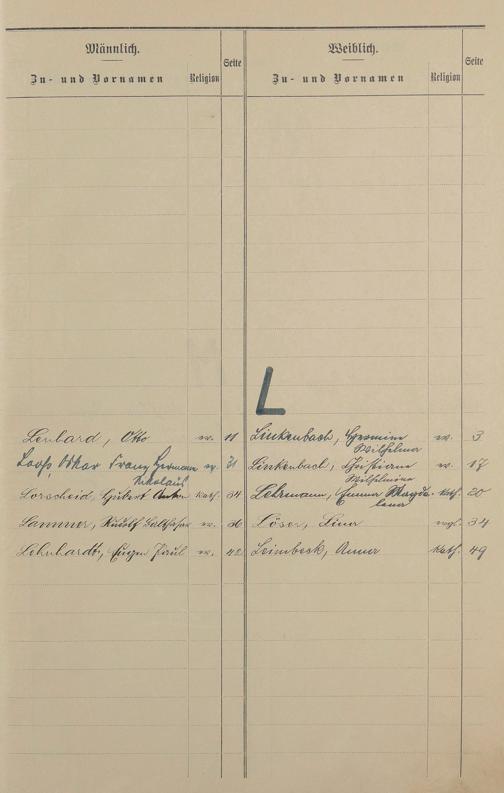 Männlich.
Zu- und Vornamen Religion Seite
Weiblich.
Zu- und Vornamen Religion Seite
L
Lenhard, Otto ev. 11
Loos, Oskar Franz Hermann ev. 31
Nikolaus
Lorscheid, Hubert Anton kath. 34
Lammer, Rudolf Balthasar ev. 36
Lehnhardt, Eugen Paul ev. 42
Linkenbach, Hermine ev. 3
Wilhelmine
Linkenbach, Christiane ev. 17
Wilhelmine
Lehrmann, Emma Magda- kath. 20
lena
Löser, Lina evgl. 34
Leimbeck, Anna kath. 49